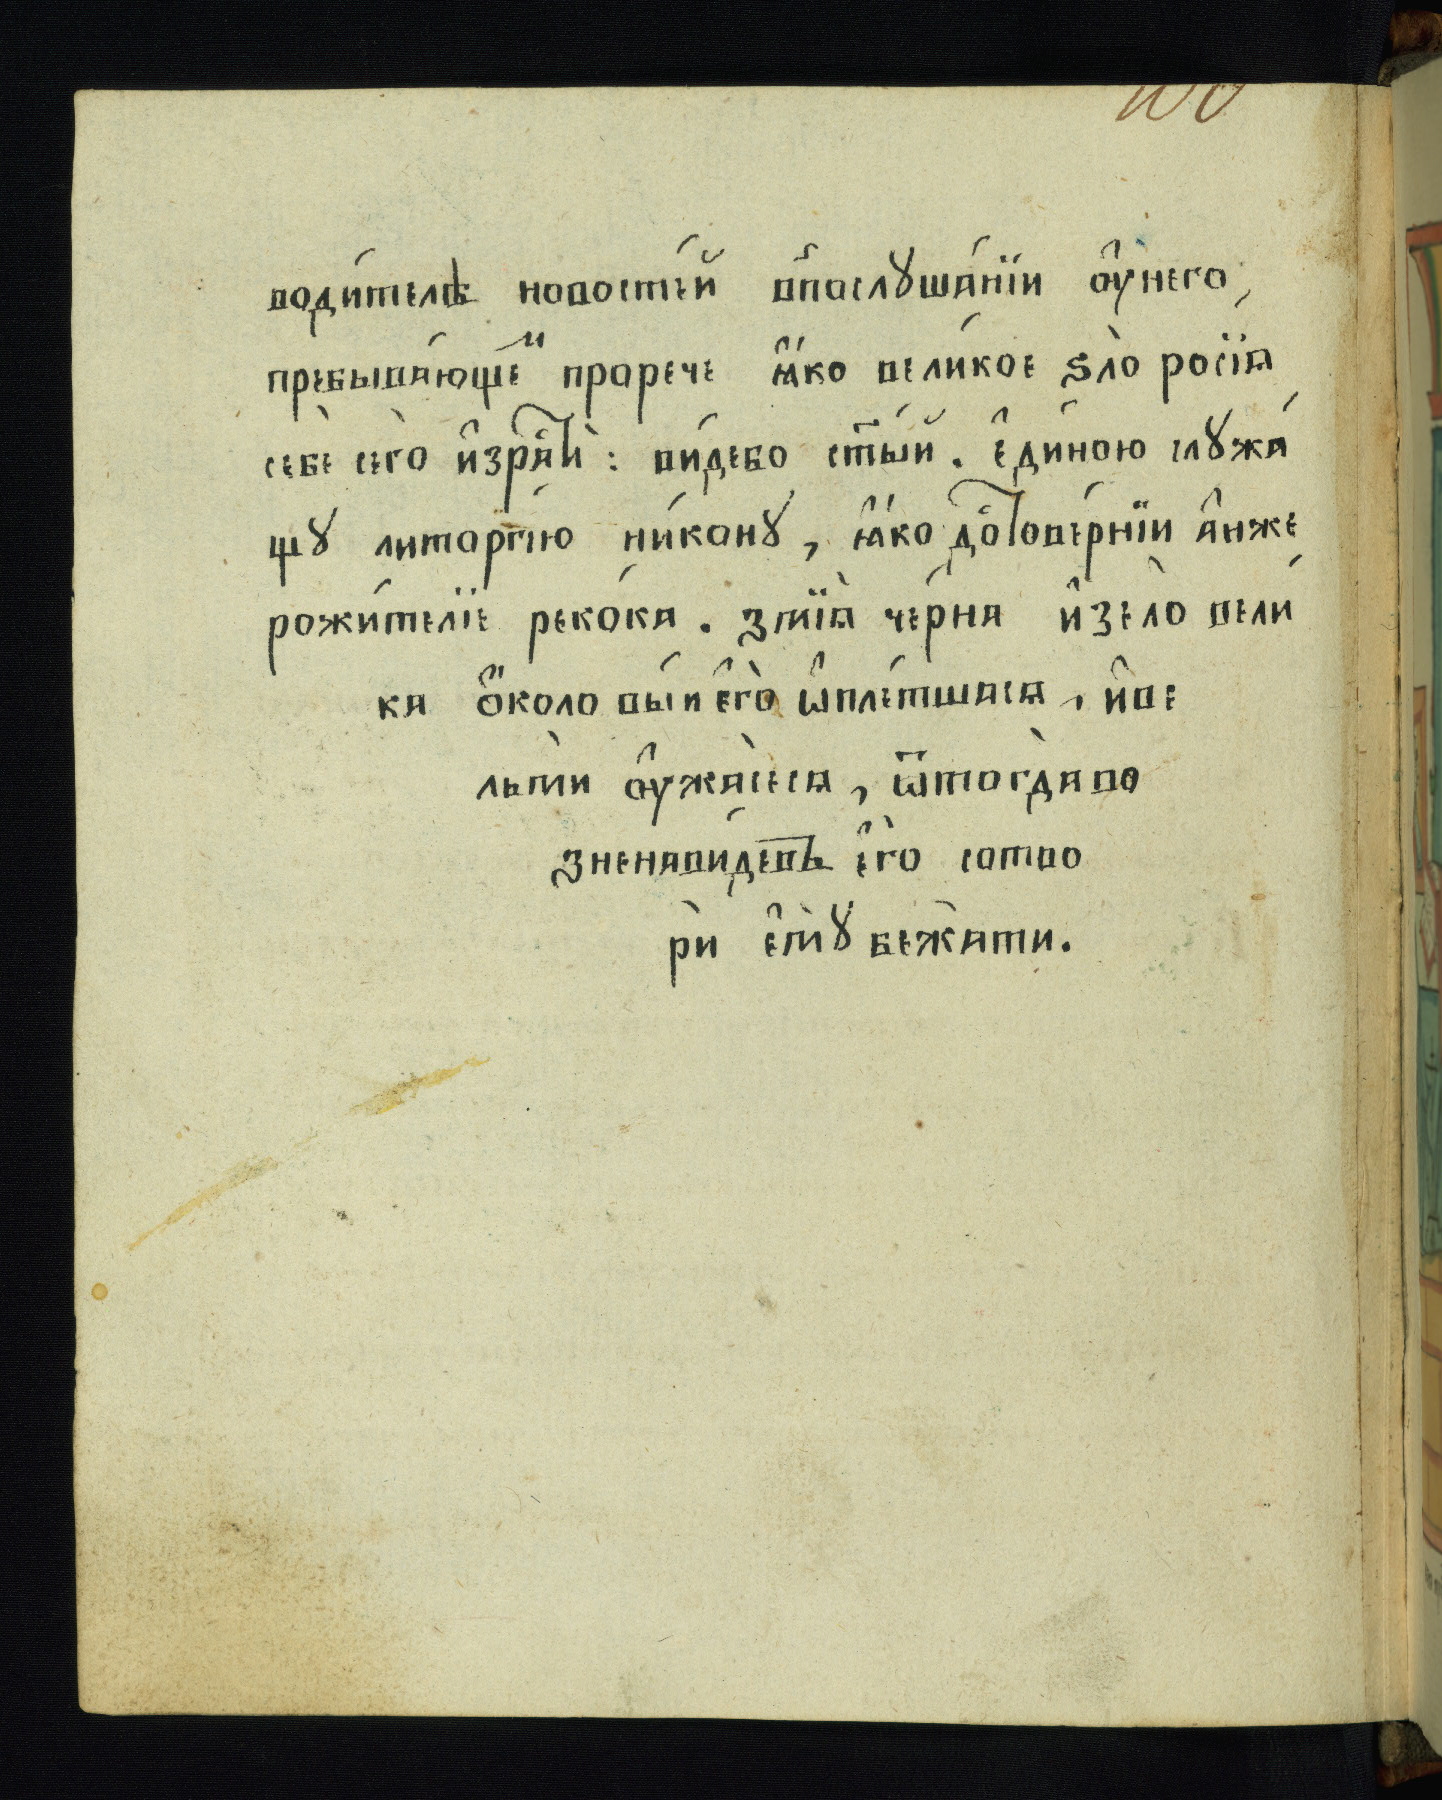 100
води́телѣ новосте́й впослꙋша́нїи оу҆него,
пребыва́юще и прорече ꙗ҆́ко вели́кое ѕло̀ росїѧ
себѐ сего̀ и҆зра́стѝ: ви́дебо ст҃ы́й. є҆ди́ною слꙋжа́
щꙋ литоргі́ю ни́конꙋ, ꙗ҆́ко достове́рнїи а҆нже
рожи́телїе реко́ка. змїѧ̀ че́рна и҆зело̀ вели́
ка ѻ҆́коло вы́и є҆го̀ ѡ҆пле́тшасѧ, и҆ве
льмѝ оу҆жасѐсѧ, ѿтогда̀ во
зненави́девъ є҆го̀ сотво
рѝ є҆мꙋ̀ бежа̀ти.